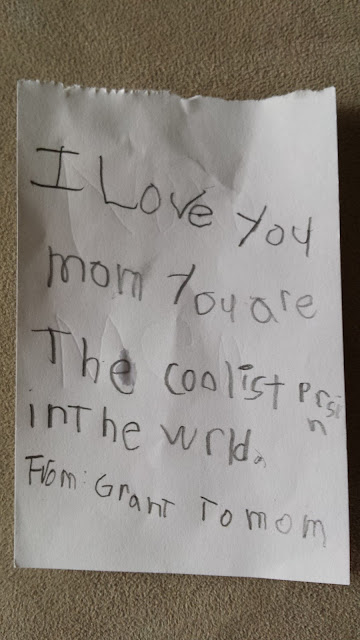 I Love You
mom You are
The coolist Prsin
in The wrld.
From: Grant To mom